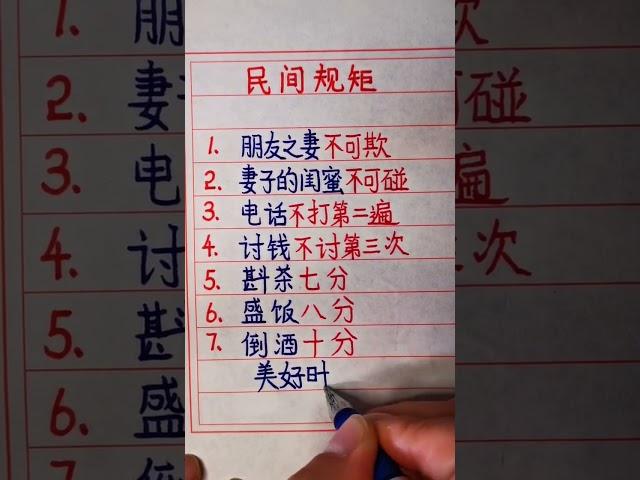 民间规矩
1. 朋友之妻不可欺
2. 妻子的闺蜜不可碰
3. 电话不打第二遍
4. 讨钱不讨第三次
5. 斟茶七分
6. 盛饭八分
7. 倒酒十分
美好